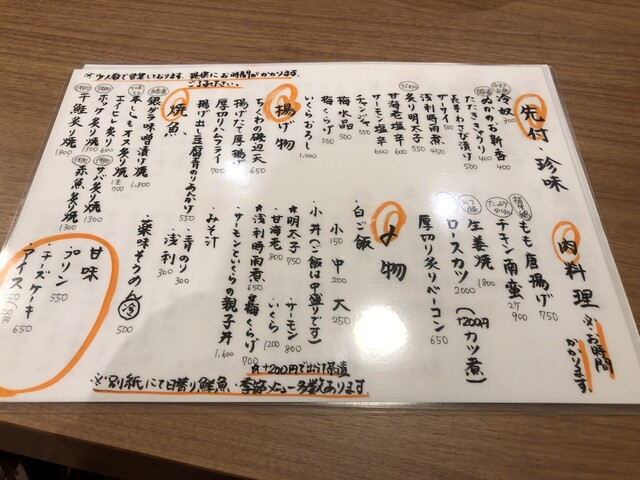 ※少人数で営業しております。提供にお時間がかかります。
ご了承ください。
先付・珍味
冷奴 300
ぬか漬のお新香 400
たたききゅうり 400
長芋わさび漬け 500
ザーサイ 500
浅利時雨煮 450
炙り明太子 550
甘海老塩辛 600
サーモン塩辛 600
チャンジャ 550
梅水晶 550
梅くらげ 500
いくらおろし 1,000
揚げ物
ちくわの磯辺天 650
揚げたて厚揚げ
厚切りハムフライ 700
揚げ出し豆腐青のりあんかけ 550
焼魚
銀ダラ味噌漬け焼 1,800
本ししゃもオス炙り焼
エイヒレ炙り焼 700
ホッケ炙り焼 1300
サバ炙り焼 1300
干鮭炙り焼 1800
赤魚炙り焼 1300
肉料理
※お時間
かかります
もも唐揚げ 750
チキン南蛮 2ケ 900
生姜焼 1800
ロースカツ 2000
(+200円カツ煮)
厚切り炙りベーコン 650
〆物
白ご飯
小 150
中 200
大 250
小丼(ご飯は中盛りです)
・明太子 750
・サーモン 800
・甘海老 800
・いくら 1200
★浅利時雨煮 650
★梅くらげ 700
・サーモンといくらの親子丼 1,600
★+200円で出汁茶漬
・みそ汁
・青のり 300
・浅利 300
・薬味そうめん 冷 500
甘味
・プリン 550
・チーズケーキ 650
・アイス
※別紙にて日替り鮮魚・季節メニュー多数あります